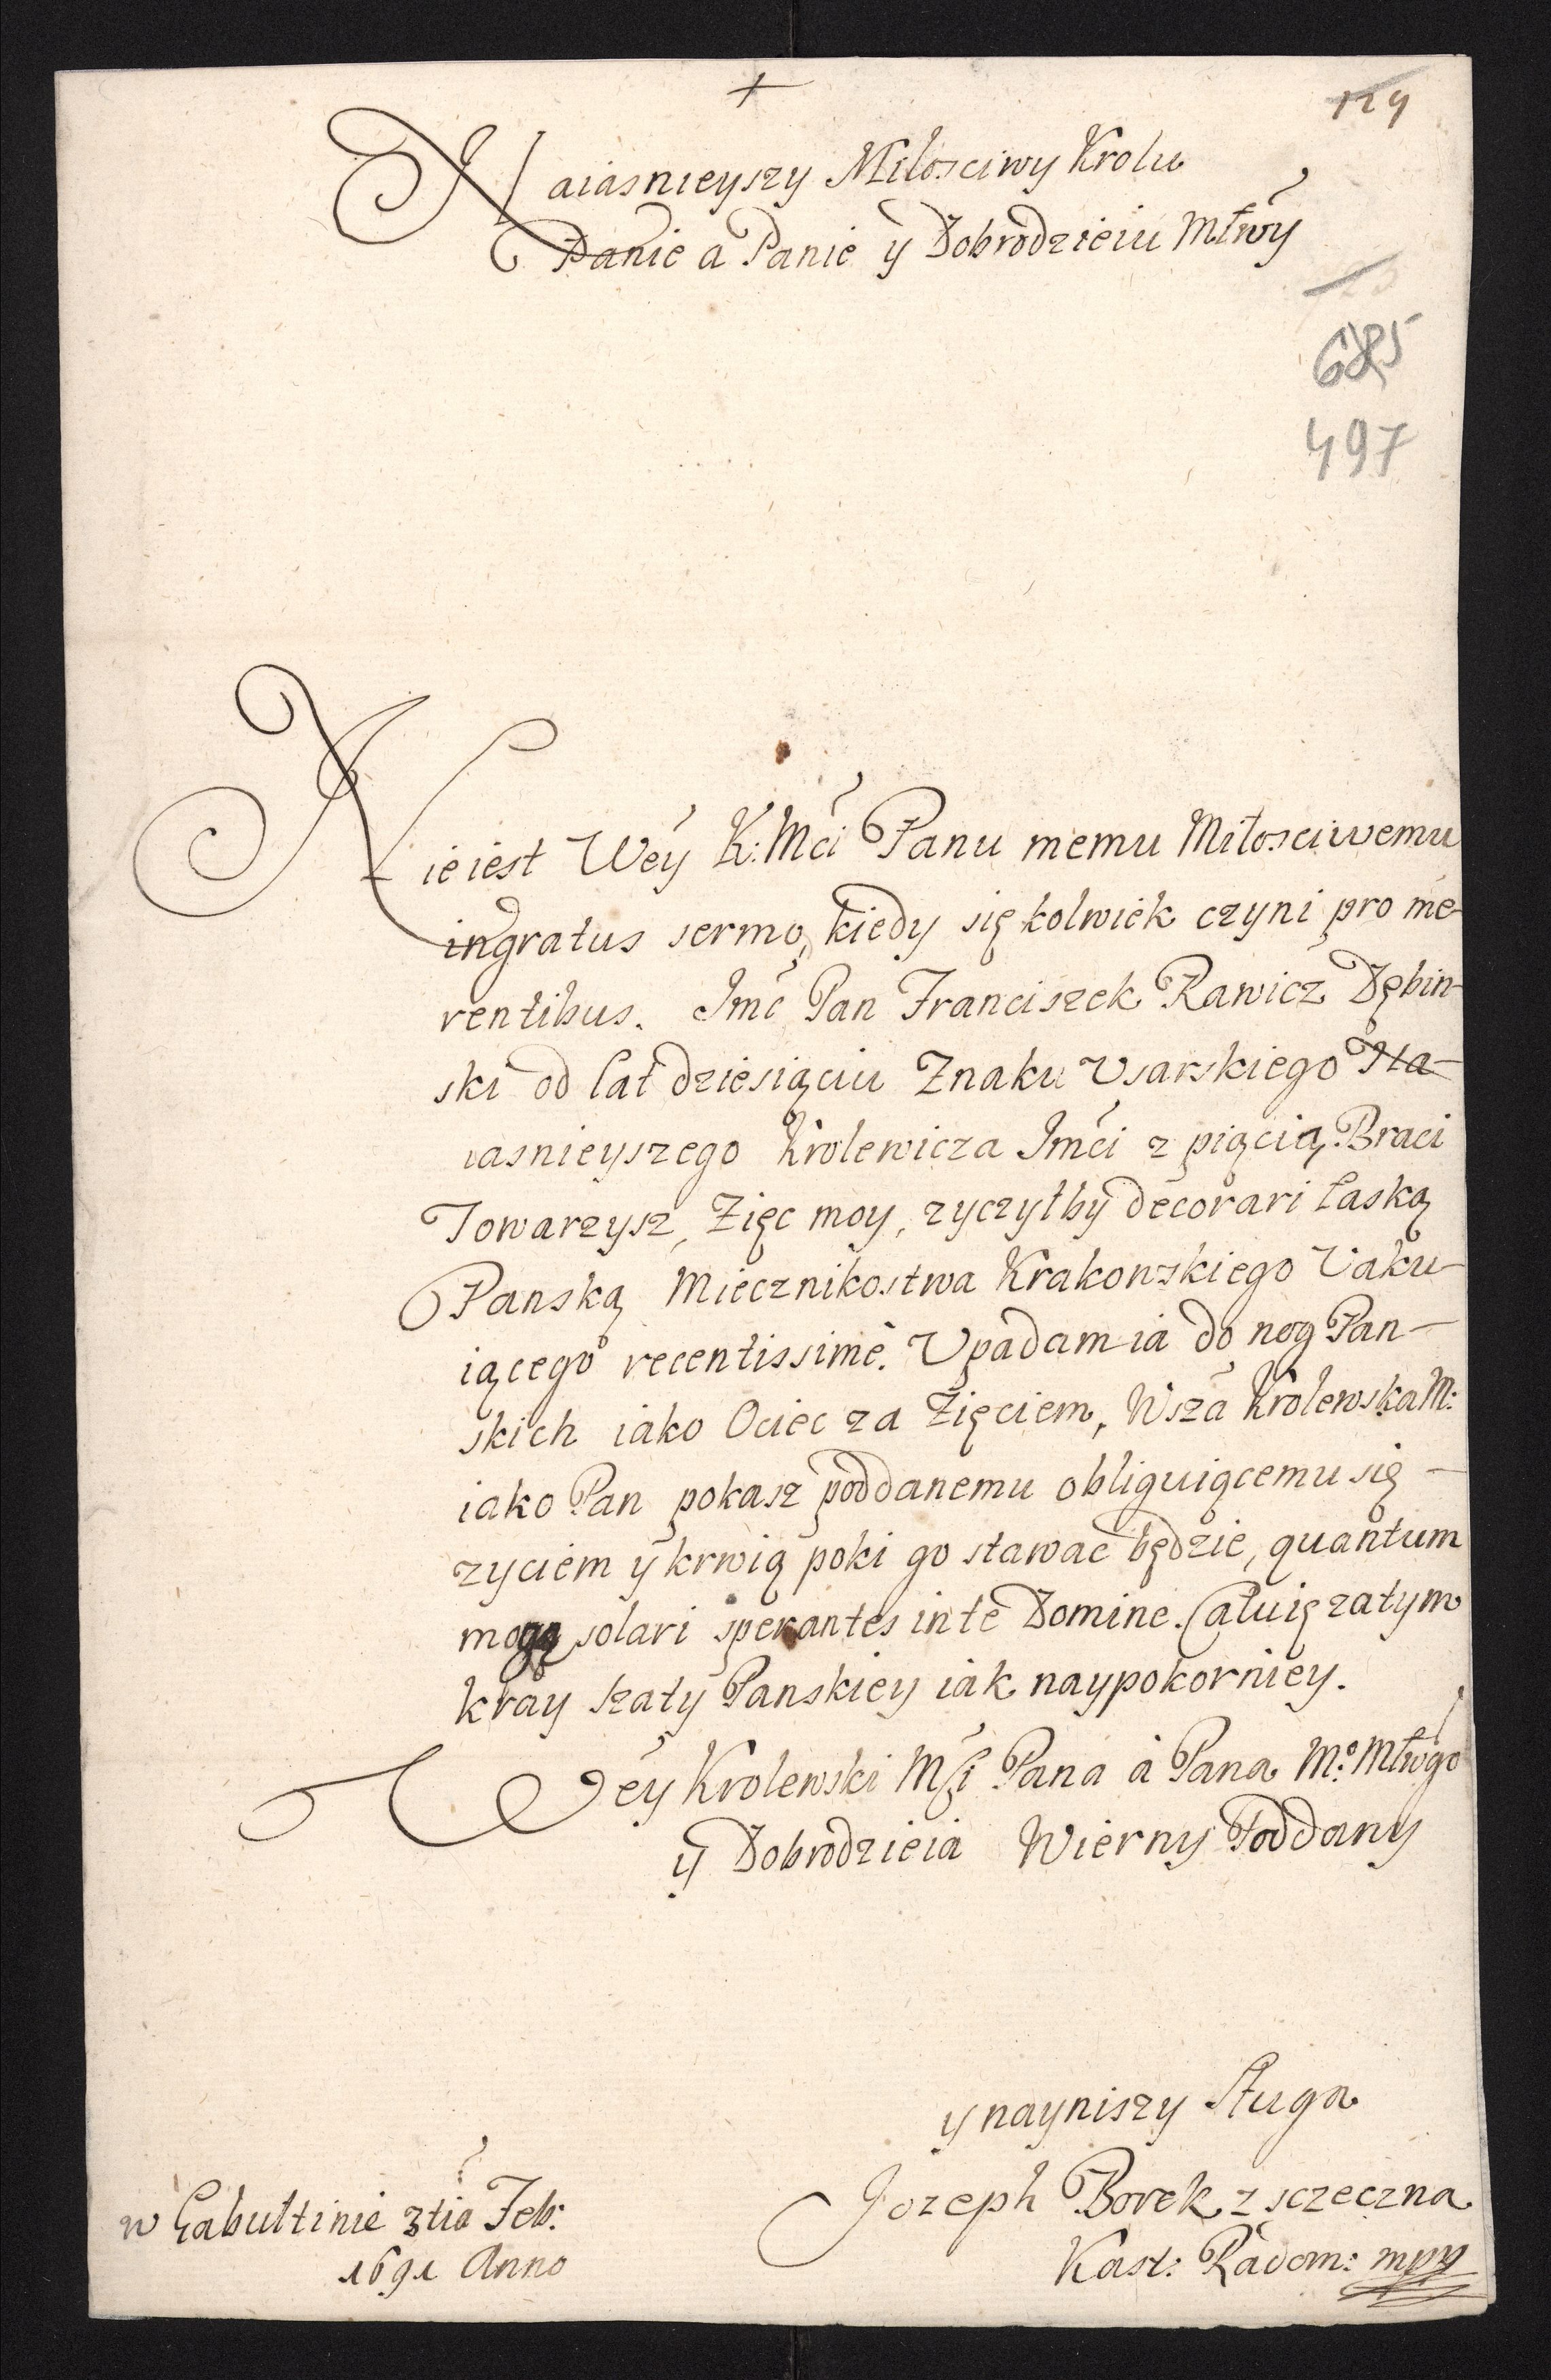 +
129
Naiasnieyszy Miłosciwy Krolu
Panie a Panie y Dobrodzieiu Młwy
685
497
Nie iest Wey K: Mci Panu memu Miłosciwemu
ingratus sermo, kiedy się kolwiek czyni pro me-
rentibus. Jmć Pan Franciszek Rawicz Dębin-
ski od lat dziesiąciu Znaku Vsarskiego Na-
iasnieyszego Krolewicza Jmći z piącią Braci
Towarzysz, Zięc moy, zyczyłby decorari łaską
Panską Miecznikostwa Krakowskiego Vaku-
iącego recentissimè. Vpadam ia do nog Pan-
skich iako Ociec za Zięciem, Wsza Krolewska M:
iako Pan pokasz poddanemu obliguiącemu się -
zyciem y krwią poki go stawać będzie, quantum
mogą solari sperantes in te Domine. Całuię zatym
kray szaty Panskiey iak naypokorniey.
Wey Krolewski Mści Pana a Pana Mº: Młwgo
y Dobrodzieia Wierny Poddany
y nayniszy Sługa
Jozeph Borek z sczeczna
Kast: Radom: mpp
w Gabułtinie 3tia Feb:
1691 Anno